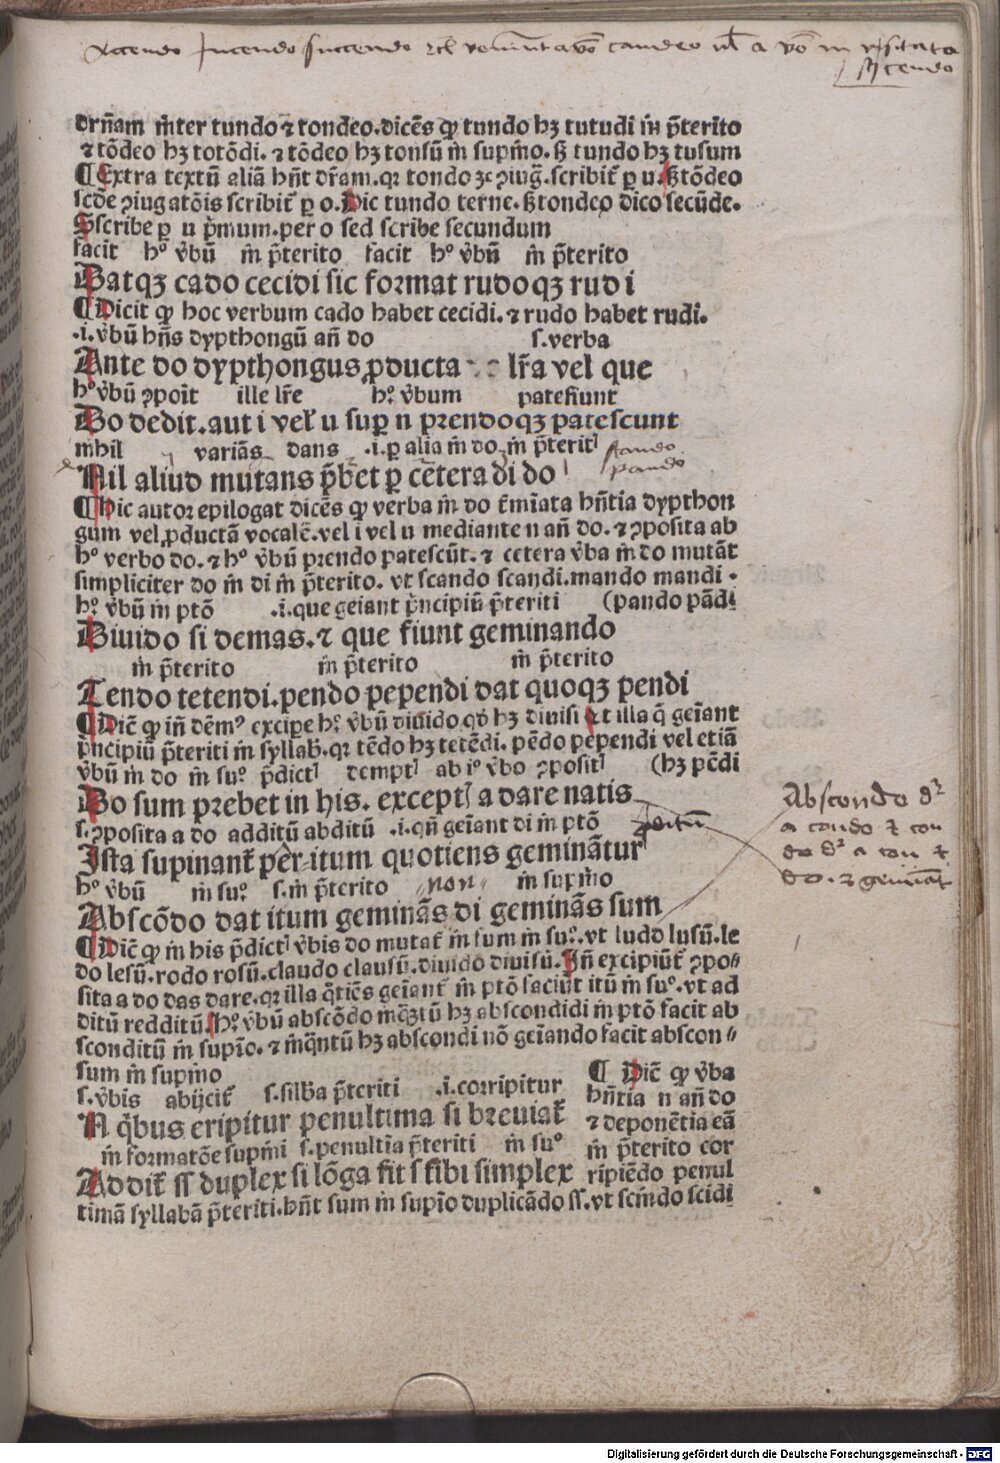 Accendo Incendo succendo
cendo
drñam inter tundo ⁊ tondeo.dicẽs ꝙ tundo hȝ tutudi in p̃terito
⁊ tõdeo hȝ totõdi. ⁊ tõdeo hȝ tonsũ in supino. sȝ tundo hȝ tusum
¶ Extra textũ aliã hñt dr̃am.qꝛ tondo ꝛc ꝯiug̃.scribit̃ ꝑ u. sȝ tõdeo
scðe ꝯiugatõis scribit̃ ꝑ o. Dic tundo terne. sȝ tondeo dico secũde.
Sȝ scribe ꝑ u p̃mum.per o sed scribe secundum
facit hº v̾bũ in p̃terito facit hº v̾bũ in p̃terito
Datqȝ cado cecidi sic format rudoqȝ rudi
¶ Dicit ꝙ hoc verbum cado habet cecidi. ⁊ rudo habet rudi.
.i. v̾bũ hñs dypthongũ añ do s. verba
Ante do dypthongus ꝓducta lr̃a vel que
hº v̾bũ ꝯpoĩt ille lr̃e hº v̾bum patefiunt
Do dedit.aut i vel̃ u suꝑ n prendoqȝ patescunt
nihil variãs dans .i. ꝑ alia in do in p̃terit̃
scando
pando
Nil aliud mutans p̃bet ꝑ cetera di do
¶ Hic autor epilogat dicẽs ꝙ verba in do t̃miata hñtia dypthon
gum vel ꝓductã vocalẽ.vel i vel u mediante n añ do. ⁊ ꝯposita ab
hº verbo do. ⁊ hº v̾bũ prendo patescũt. ⁊ cetera v̾ba in do mutãt
simpliciter do in di in p̃terito. vt scando scandi.mando mandi.
hº v̾bũ in ptõ .i. que geiant p̃ncipiũ p̃teriti (pando pãdi
Diuido si demas. ⁊ que fiunt geminando
in p̃terito in p̃terito in p̃terito
Tendo tetendi.pendo pependi dat quoqȝ pendi
¶ Dic̃ ꝙ iñ dẽmº excipe hº v̾bũ diuido.qð hȝ diuisi Et illa q̃ geĩant
p̃ncipiũ p̃teriti in syllab̃.qꝛ tẽdo hȝ tetẽdi. pẽdo pependi vel etiã
v̾bũ in do in suº p̃dict̃ dempt̃ ab iº v̾bo ꝯposit̃ (hȝ pẽdi
Do sum prebet in his. except̃ a dare natis
s. ꝯposita a do additũ abditũ .i. qñ geĩant di in ptõ
Ista supinant̃ per itum quotiens geminãtur
hº v̾bũ in suº s. in p̃terito non in supino
Abscõdo dat itum geminãs di geminãs sum
¶ Dic̃ ꝙ in his p̃dict̃ v̾bis do mutat̃ in sum in suº. vt ludo lusũ.le
do lesũ.rodo rosũ.claudo clausũ.diuido diuisũ. Iñ excipiũt̃ ꝯpo
sita a do das dare.qꝛ illa q̃tiẽs geĩant̃ in ptõ faciũt itũ in suº. vt ad
ditũ redditũ. Hº v̾bũ abscõdo inq̃ȝtũ hȝ abscondidi in ptõ facit ab
sconditũ in supĩo. ⁊ inq̃ntũ hȝ abscondi nõ geĩando facit abscon
sum in supino
Abscondo dr̃
a condo ⁊ con
do dr̃ a con ⁊
do. ⁊ geminat
s. v̾bis abijcit̃ s. silb̃a p̃teriti .i. corripitur
N q̃bus eripitur penultima si breuiat̃
in formatõe supini s. penultĩa p̃teriti in suº
Addit̃ ss duplex si lõga fit s sibi simplex
¶ Dic̃ ꝙ v̾ba
hñtia n añ do
⁊ deponẽtia eã
in p̃terito cor
ripiẽdo penul
timã syllabã p̃teriti.hñt sum in supĩo duplicãdo ss. vt scindo scidi
Digitalisierung gefördert durch die Deutsche Forschungsgemeinschaft - DFG